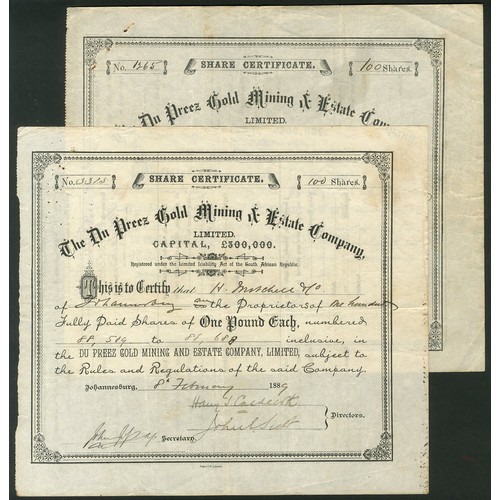 No. 1265 SHARE CERTIFICATE. 100 Shares.
Du Preez Gold Mining & Estate Comp
LIMITED.
No. SHARE CERTIFICATE. 100 Shares.
The Du Preez Gold Mining & Estate Company,
LIMITED.
CAPITAL, £300,000.
Registered under the Limited Liability Act of the South African Republic.
This is to Certify that H. Mitchell & Co
of Johannesburg are the Proprietors of One hundred
Fully Paid Shares of One Pound Each, numbered
88,589 to 88,688 inclusive, in
the DU PREEZ GOLD MINING AND ESTATE COMPANY, LIMITED, subject to
the Rules and Regulations of the said Company.
Johannesburg, 8th February 1889
Directors.
Secretary.